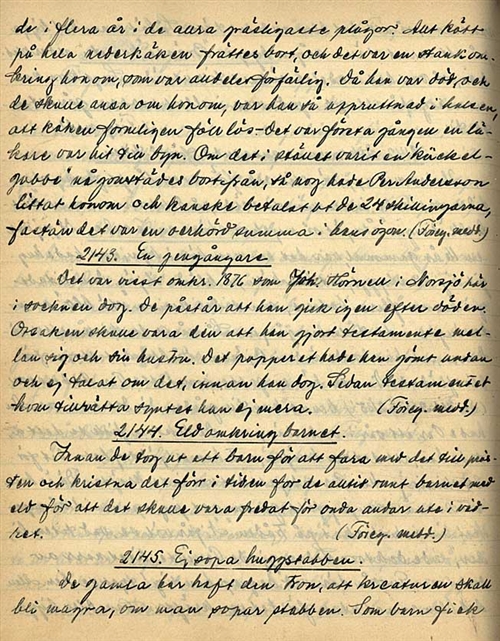 de i flera år i de allra gräsligaste plågor. Allt kött
på hela nederkäken frättes bort, och det var en stank om-
kring honom, som var alldeles förfärlig. Då han var död, och
de skulle ansa om honom, var han så uppruttnad i halsen,
att käken formligen föll lös - det var första gången en lä-
kare var hit till byn. Om det i stället varit en "kückel-
gubbe" någonstädes bortifrån, så nog hade Per Andersson
littat honom och kanske betalat ut de 24 skillingarna,
fastän det var en oerhörd summa i hans ögon. (Föreg. medd.)
2143. En gengångare
Det var visst omkr. 1876 som Joh. Hörnell i Norsjö här
i socknen dog. De påstår att han gick igen efter döden.
Orsaken skulle vara den att han gjort testamente mel-
lan sig och sin hustru. Det papperet hade han gömt undan
och ej talat om det, innan han dog. Sedan testamentet
kom tillrätta syntes han ej mera. (Föreg. medd.)
2144. Eld omkring barnet.
Innan de tog ut ett barn för att fara med det till präs-
ten och kristna det förr i tiden for de alltid runt barnet med
eld för att det skulle vara fredat för onda andar ute i väd-
ret. (Föreg. medd.)
2145. Ej sopa huggstabben.
De gamla har haft den tron, att kreaturen skall
bli magra, om man sopar stabben. Som barn fick